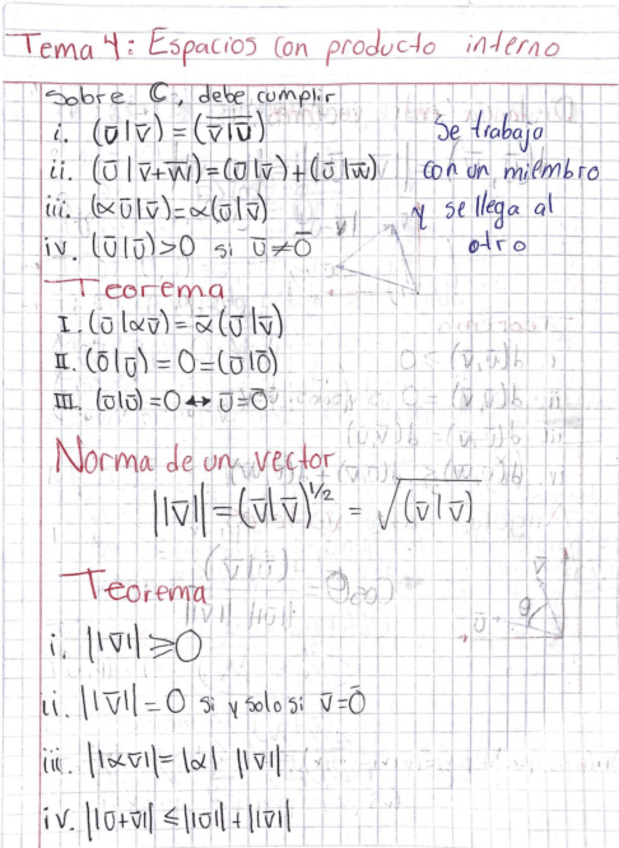 Tema 4: Espacios con producto interno
Sobre ℂ, debe cumplir
i. (ū|v̄) = (\overline{v̄|ū})
ii. (ū|v̄+w̄)=(ū|v̄)+(ū|w̄)
iii. (αū|v̄)=α(ū|v̄)
iv. (ū|ū)>0 si ū≠ō
Se trabaja
con un miembro
y se llega al
otro
Teorema
I. (ū|αv̄) = ᾱ(ū|v̄)
II. (ō|ū) = 0 = (ū|ō)
III. (ū|ū) = 0 ↔ ū=ō
Norma de un vector
||v̄|| = (v̄|v̄)^{1/2} = √(v̄|v̄)
Teorema
i. ||v̄|| ⩾ 0
ii. ||v̄|| = 0 si y solo si v̄=ō
iii. ||αv̄|| = |α| ||v̄||
iv. ||ū+v̄|| ≤ ||ū|| + ||v̄||